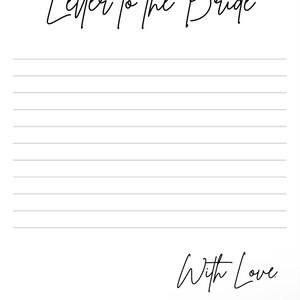 Letter to the Bride
With Love